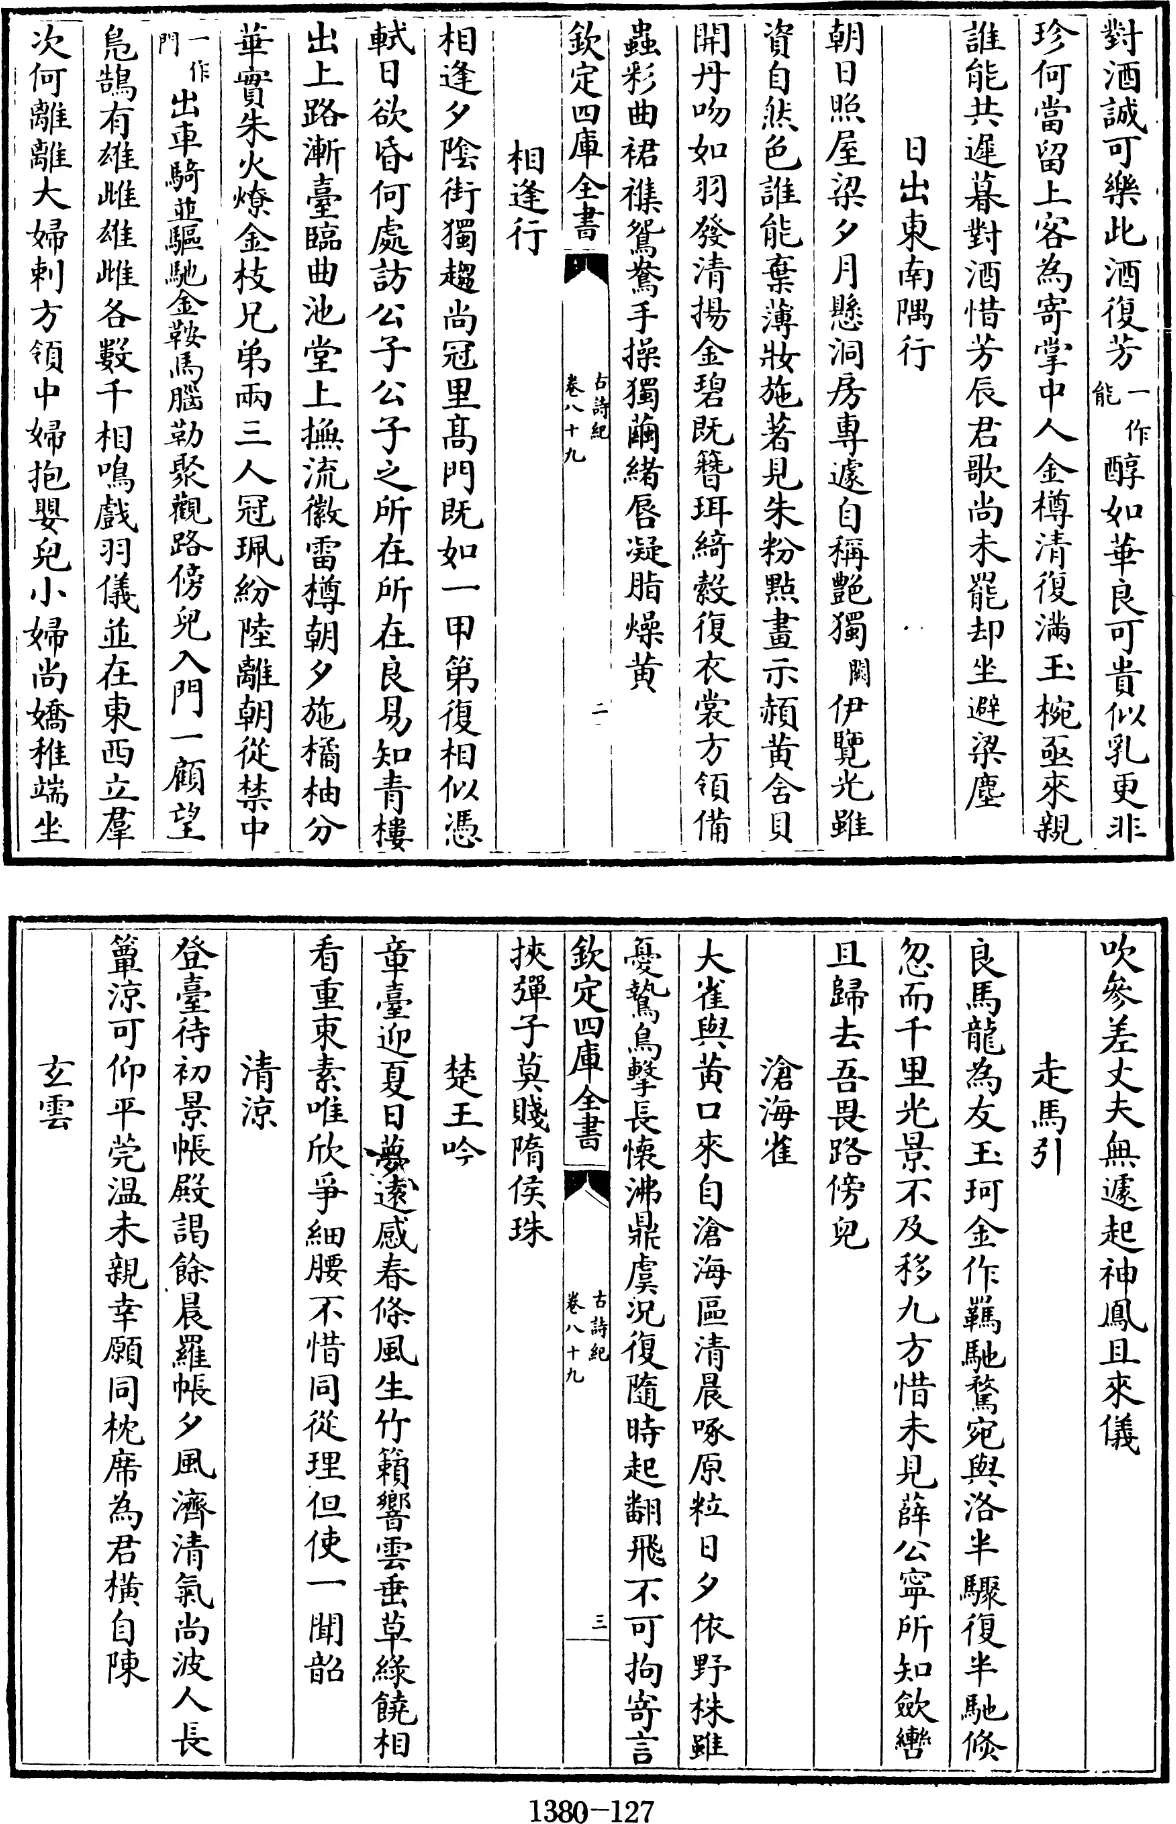 對酒誠可樂此酒復芳一作能醇如華良可貴似乳更非
珍何當留上客為寄掌中人金樽清復滿玉椀亟來親
誰能共遲暮對酒惜芳辰君歌尚未罷却坐避梁塵
日出東南隅行
朝日照屋梁夕月懸洞房專遽自稱艷獨闕伊覽光雖
資自然色誰能棄薄妝施著見朱粉點畫示赬黃含貝
開丹吻如羽發清揚金碧既簪珥綺縠復衣裳方領備
蟲彩曲裙襍鴛鴦手操獨繭緒唇凝脂燥黃
欽定四庫全書
古詩紀
卷八十九
二
相逢行
相逢夕陰街獨趨尚冠里髙門既如一甲第復相似憑
軾日欲昏何處訪公子公子之所在所在良易知青樓
出上路漸臺臨曲池堂上撫流徽雷樽朝夕施橘柚分
華實朱火燎金枝兄弟兩三人冠珮紛陸離朝從禁中
一作門出車騎並驅馳金鞍馬腦勒聚觀路傍兒入門一顧望
鳧鵠有雄雌雄雌各數千相鳴戲羽儀並在東西立羣
次何離離大婦刺方領中婦抱嬰兒小婦尚嬌稚端坐
吹參差丈夫無遽起神鳳且來儀
走馬引
良馬龍為友玉珂金作羈馳騖宛與洛半驟復半馳倐
忽而千里光景不及移九方惜未見薛公寧所知歛轡
且歸去吾畏路傍兒
滄海雀
大雀與黃口來自滄海區清晨啄原粒日夕依野株雖
憂鷙鳥擊長懷沸鼎虞况復隨時起翻飛不可拘寄言
欽定四庫全書
古詩紀
卷八十九
三
挾彈子莫賤隋侯珠
楚王吟
章臺迎夏日夢遠感春條風生竹籟響雲垂草綠饒相
看重束素唯欣爭細腰不惜同從理但使一聞韶
清涼
登臺待初景帳殿謁餘晨羅帳夕風濟清氣尚波人長
簟涼可仰平莞温未親幸願同枕席為君橫自陳
玄雲
1380-127